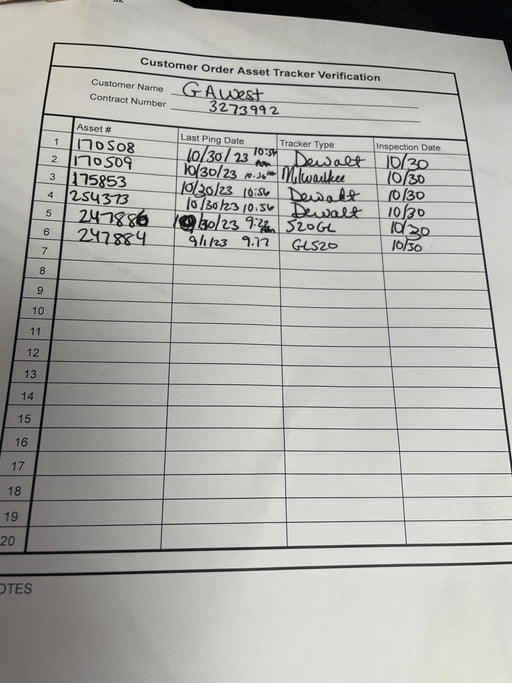 Customer Order Asset Tracker Verification
Customer Name GAWest
Contract Number 3273992
Asset # Last Ping Date Tracker Type Inspection Date
1 170508 10/30/23 10:56 am Dewalt 10/30
2 170509 10/30/23 10:56 am Milwaukee 10/30
3 175853 10/30/23 10:56 Dewalt 10/30
4 254373 10/30/23 10:56 Dewalt 10/30
5 247886 10/30/23 520GL 10/30
6 247884 9/1/23 GL520 10/30
7
8
9
10
11
12
13
14
15
16
17
18
19
20
OTES